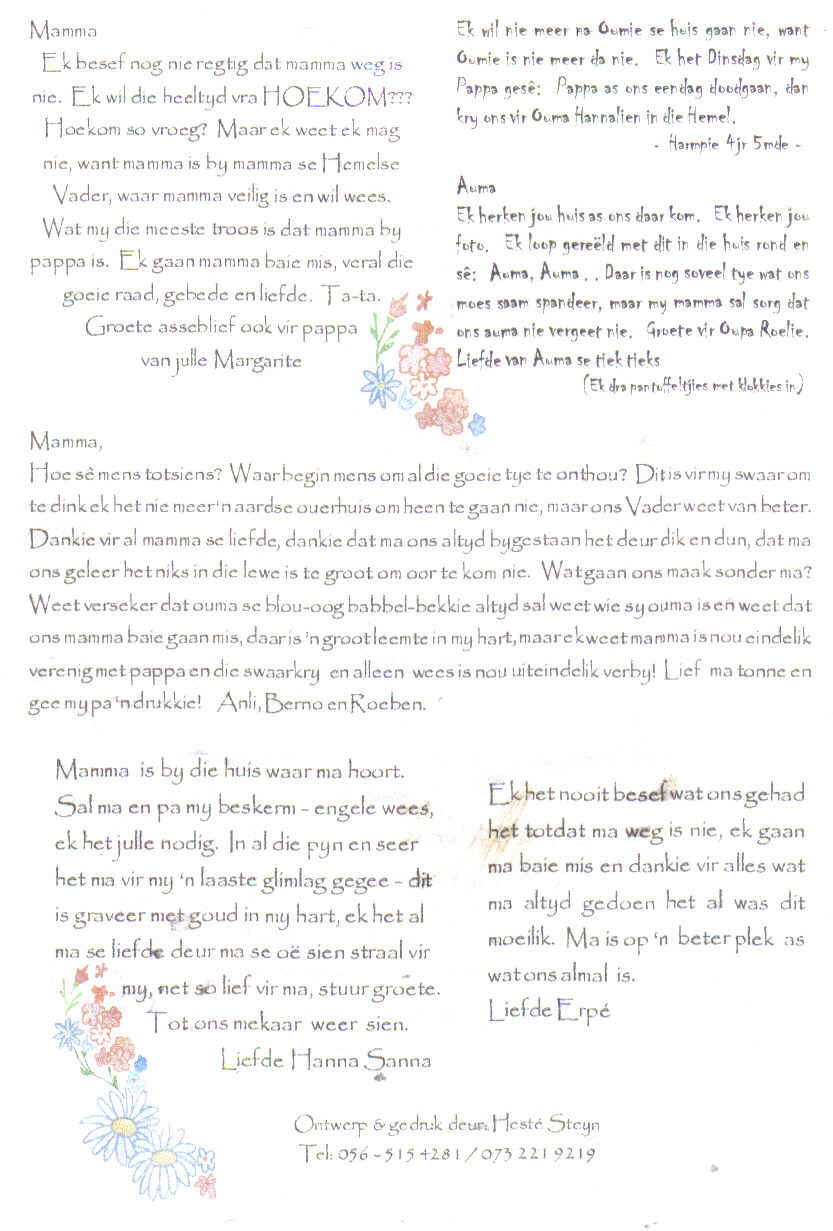 Mamma
Ek besef nog nie regtig dat mamma weg is
nie. Ek wil die heeltyd vra HOEKOM???
Hoekom so vroeg? Maar ek weet ek mag
nie, want mamma is by mamma se Hemelse
Vader, waar mamma veilig is en wil wees.
Wat my die meeste troos is dat mamma by
pappa is. Ek gaan mamma baie mis, veral die
goeie raad, gebede en liefde. Ta-ta.
Groete asseblief ook vir pappa
van julle Margarite
Ek wil nie meer na Oumie se huis gaan nie, want
Oumie is nie meer da nie. Ek het Dinsdag vir my
Pappa gesê: Pappa as ons eendag doodgaan, dan
kry ons vir Ouma Hannalien in die Hemel.
- Harmpie 4jr 5mde -
Auma
Ek herken jou huis as ons daar kom. Ek herken jou
foto. Ek loop gereëld met dit in die huis rond en
sê: Auma, Auma . . Daar is nog soveel tye wat ons
moes saam spandeer, maar my mamma sal sorg dat
ons auma nie vergeet nie. Groete vir Oupa Roelie.
Liefde van Auma se tiek tieks
(Ek dra pantoffeltjies met klokkies in)
Mamma,
Hoe sê mens totsiens? Waar begin mens om al die goeie tye te onthou? Dit is vir my swaar om
te dink ek het nie meer 'n aardse ouerhuis om heen te gaan nie, maar ons Vader weet van beter.
Dankie vir al mamma se liefde, dankie dat ma ons altyd bygestaan het deur dik en dun, dat ma
ons geleer het niks in die lewe is te groot om oor te kom nie. Wat gaan ons maak sonder ma?
Weet verseker dat ouma se blou-oog babbel-bekkie altyd sal weet wie sy ouma is en weet dat
ons mamma baie gaan mis, daar is 'n groot leemte in my hart, maar ek weet mamma is nou eindelik
verenig met pappa en die swaarkry en alleen wees is nou uiteindelik verby! Lief ma tonne en
gee my pa 'n drukkie! Anli, Berno en Roeben.
Mamma is by die huis waar ma hoort.
Sal ma en pa my beskerm - engele wees,
ek het julle nodig. In al die pyn en seer
het ma vir my 'n laaste glimlag gegee - dit
is graveer met goud in my hart, ek het al
ma se liefde deur ma se oë sien straal vir
my, net so lief vir ma, stuur groete.
Tot ons mekaar weer sien.
Liefde Hanna Sanna
Ek het nooit besef wat ons gehad
het totdat ma weg is nie, ek gaan
ma baie mis en dankie vir alles wat
ma altyd gedoen het al was dit
moeilik. Ma is op 'n beter plek as
wat ons almal is.
Liefde Erpé
Ontwerp & gedruk deur: Hesté Steyn
Tel: 056 - 515 4281 / 073 221 9219